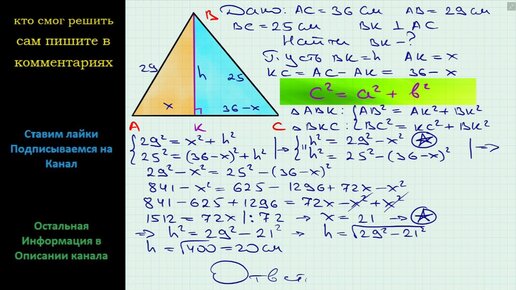 кто смог решить
сам пишите в
комментариях
Ставим лайки
Подписываемся на
Канал
Остальная
Информация в
Описании канала
B
29
h
25
x
36-x
A
K
C
Дано: AC = 36 см AB = 29 см
BC = 25 см BK ⊥ AC
Найти BK - ?
Пусть BK = h AK = x
KC = AC - AK = 36 - x
c² = a² + b²
△ABK: { AB² = AK² + BK²
△BKC: { BC² = KC² + BK²
{ 29² = x² + h²
{ 25² = (36-x)² + h²
→ { h² = 29² - x² A
{ h² = 25² - (36-x)²
|=>
29² - x² = 25² - (36-x)²
841 - x² = 625 - 1296 + 72x - x²
841 - 625 + 1296 = 72x - x² + x²
1512 = 72x |:72 → x = 21 → A
=> h² = 29² - 21² → h = √29² - 21²
h = √400 = 20 см
Ответ.